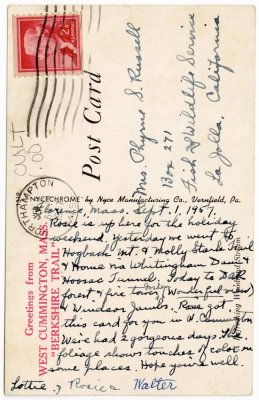 Post Card
Mrs Phyrne S. Russell
Box 271
Fish & Wildlife Service
La Jolla,
California
"NYCECHROME" by Nyce Manufacturing Co., Vernfield, Pa.
Greetings from
WEST CUMMINGTON, MASS.
"BERKSHIRE TRAIL"
Florence, Mass. Sept. 1, 1957.
Rosie is up here for the holiday
weekend. Yesterday we went to
Hogback Mt. & Molly Stark Trail
& Home via Whitingham Dam &
Hoosac Tunnel. Today to DAR
forest & fire tower (Wonderful view)
& Windsor Jambs. Rose got
this card for you in W. Cummington
We've had 2 gorgeous days. The
foliage shows touches of color in
some places. Hope you're well.
Lottie, Rosie & Walter